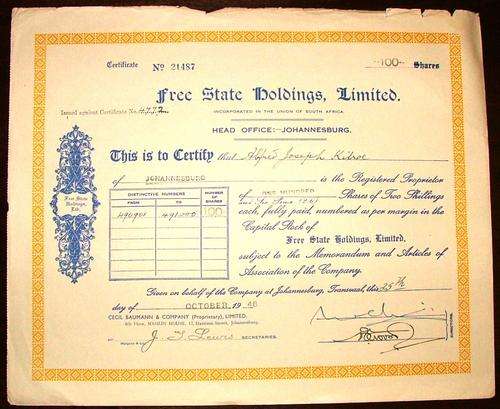 Certificate No 21487 --100-- Shares
Free State Holdings, Limited.
Issued against Certificate No. 4772
INCORPORATED IN THE UNION OF SOUTH AFRICA
HEAD OFFICE:-JOHANNESBURG.
This is to Certify that Alfred Joseph Kilroe
of JOHANNESBURG is the Registered Proprietor
of ONE HUNDRED Shares of Two Shillings
each, fully paid, numbered as per margin in the
Capital Stock of
Free State Holdings, Limited,
subject to the Memorandum and Articles of
Association of the Company.
DISTINCTIVE NUMBERS NUMBER OF SHARES
FROM TO
490901 491000 100
Free State Holdings, Ltd.
Given on behalf of the Company at Johannesburg, Transvaal, this 25th
day of OCTOBER, 1948
CECIL BAUMANN & COMPANY (Proprietary), LIMITED.
J. S. Lewis SECRETARIES.
DIRECTORS.